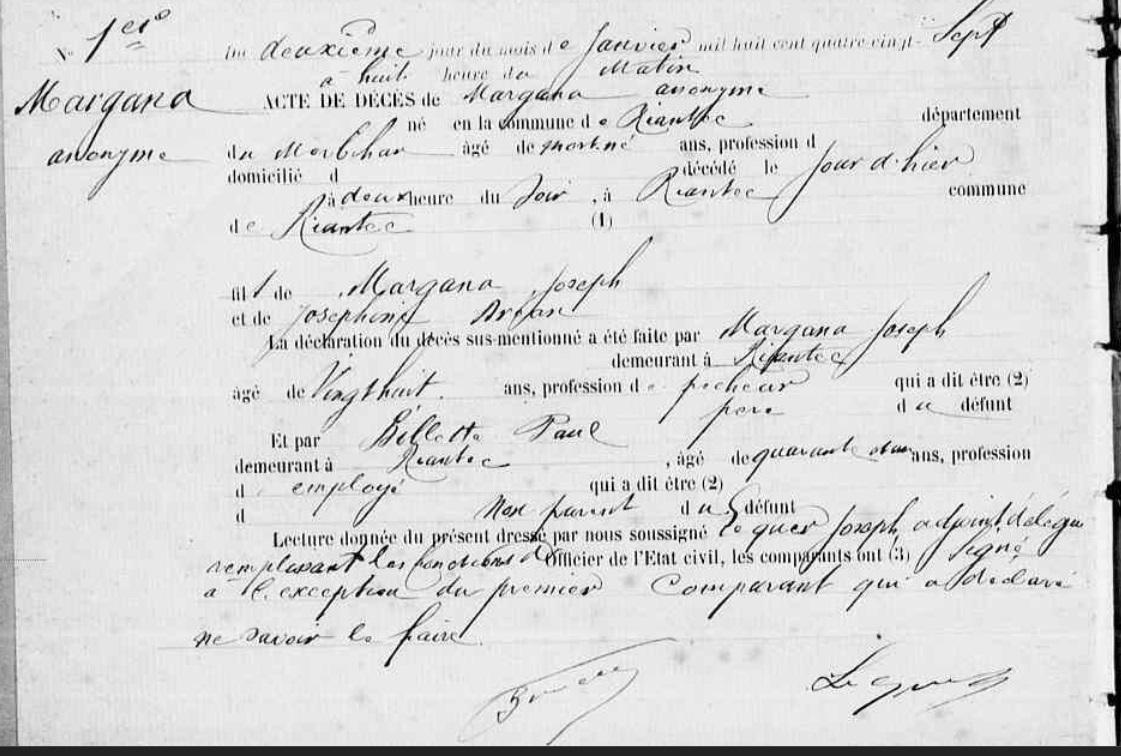 N° 1er
Du deuxième jour du mois de Janvier mil huit cent quatre-vingt-Sept
à huit heure du Matin
Margana
anonyme
ACTE DE DÉCÈS de Margana anonyme
né en la commune de Riantec département
du Morbihan âgé de mort né ans, profession d
domicilié d décédé le jour d'hier
à deux heure du Soir, à Riantec commune
de Riantec (1)
fils de Margana Joseph
et de Josephine
La déclaration du décès sus-mentionné a été faite par Margana Joseph
demeurant à Riantec
âgé de Vingt huit ans, profession de pecheur qui a dit être (2)
pere du défunt
Et par Billette Paul
demeurant à Riantec, âgé de quarante ans, profession
d employé qui a dit être (2)
d Non parent du défunt
Lecture donnée du présent dressé par nous soussigné Le quer Joseph, adjoint délégué
remplissant les fonctions d'Officier de l'Etat civil, les comparants ont (3) signé
a l'exception du premier Comparant qui a déclaré
ne savoir le faire